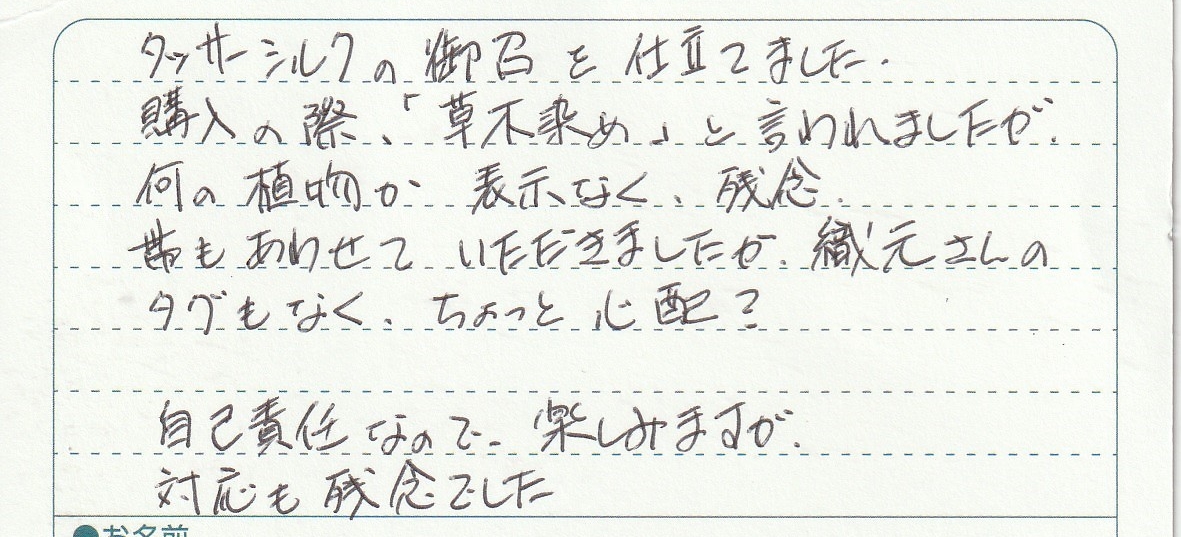 タッサーシルクの御召を仕立てました.
購入の際、「草木染め」と言われましたが.
何の植物か 表示なく、残念.
帯もあわせて いただきましたが. 織元さんの
タグもなく、ちょっと心配?
自己責任なので、楽しみますが.
対応も残念でした
●お名前